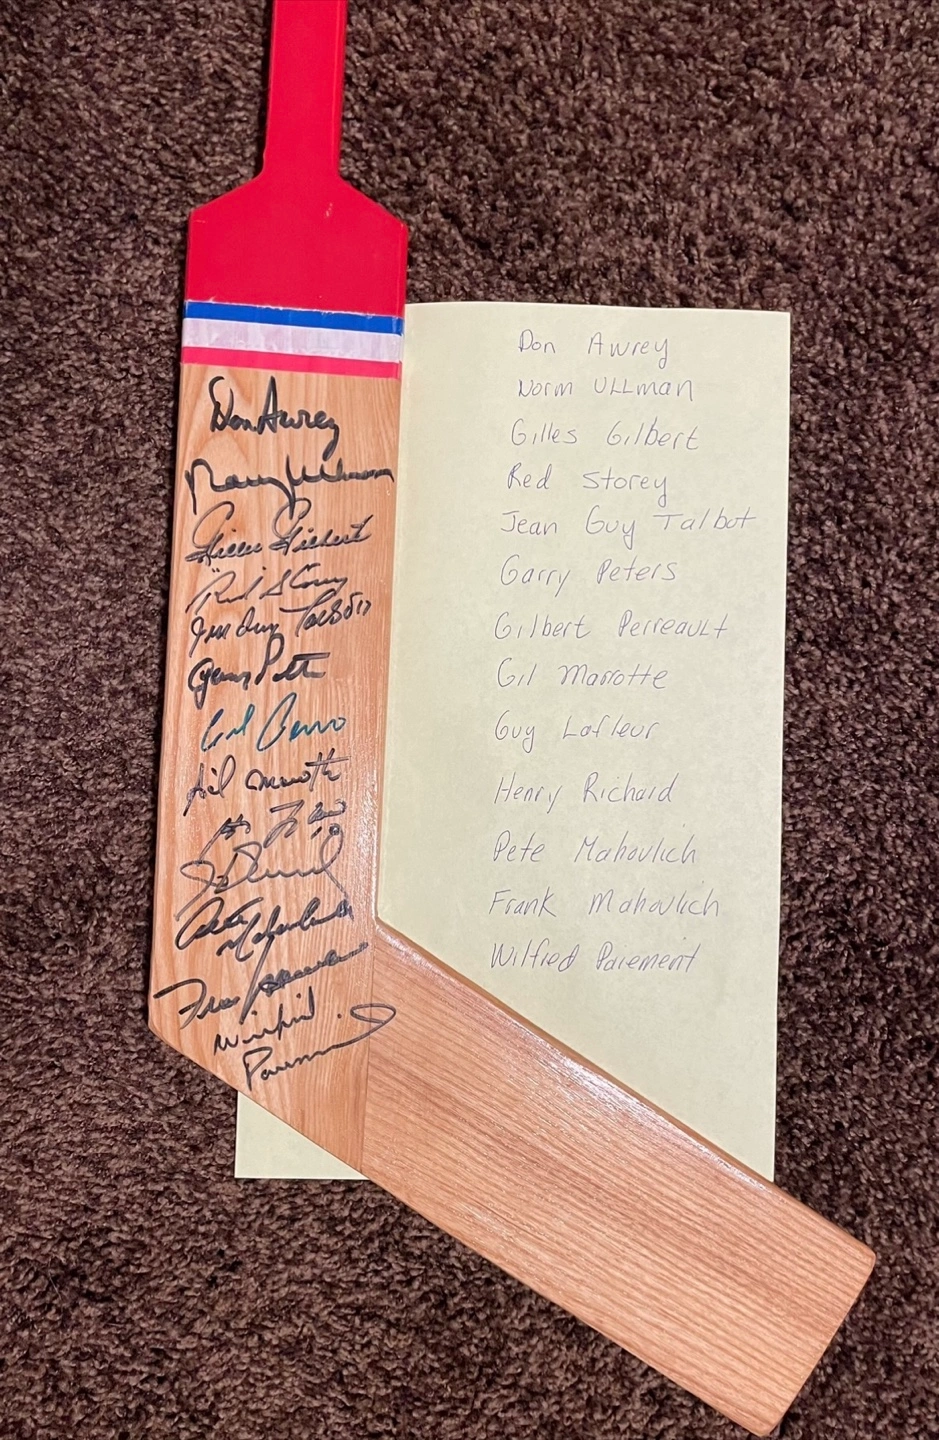 Don Awrey
Don Awrey
Norm Ullman
Norm Ullman
Gilles Gilbert
Gilles Gilbert
"Red" Storey
Red Storey
Jean Guy Talbot
Jean Guy Talbot
Garry Peters
Garry Peters
Gilbert Perreault
Gil Marotte
Gil Marrotte
Guy Lafleur
Henry Richard
Pete Mahovlich
Pete Mahovlich
Frank Mahovlich
Frank Mahovlich
Wilfrid
Paiement
Wilfred Paiement